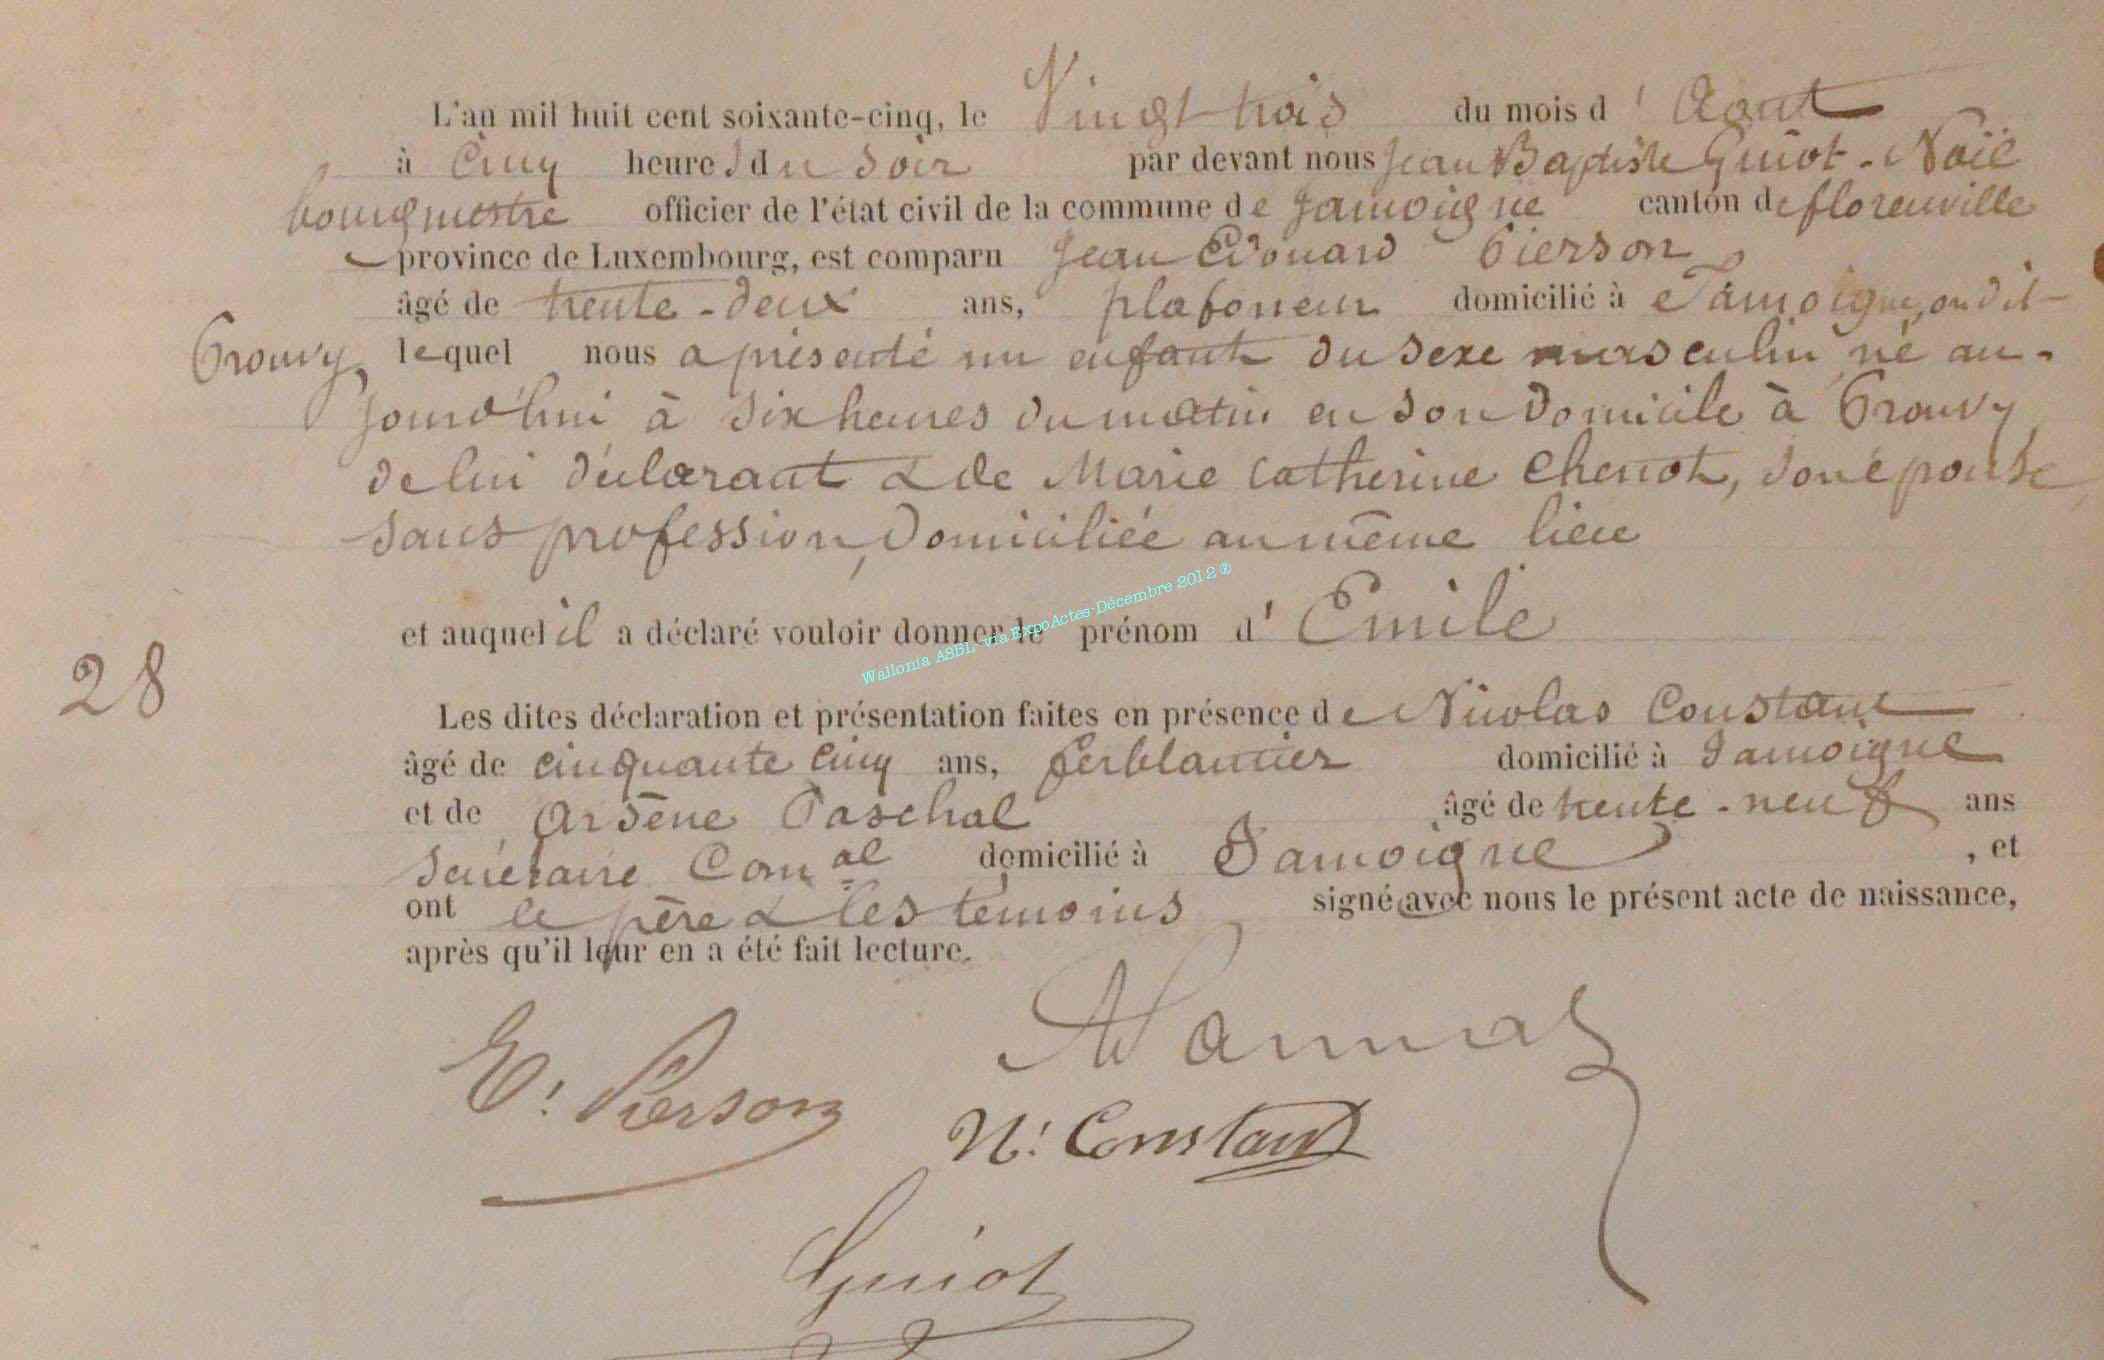 L'an mil huit cent soixante-cinq, le Vingt trois du mois d'Aout
à Cinq heures du soir par devant nous Jean Baptiste Guiot-Noël
bourgmestre officier de l'état civil de la commune de Jamoigne canton de florenville
province de Luxembourg, est comparu Jean Edouard Pierson
âgé de trente-deux ans, plafoneur domicilié à Jamoigne, au dit
Prouvy, lequel nous a présenté un enfant du sexe masculin né au-
jourd'hui à six heures du matin en son domicile à Prouvy
de lui déclarant & de Marie Catherine Chenot, son épouse,
sans profession, domiciliée au même lieu
et auquel il a déclaré vouloir donner le prénom d'Emile
Wallonia ASBL via ExpoActes-Décembre 2012 ®
28
Les dites déclaration et présentation faites en présence de Nicolas Constant
âgé de cinquante cinq ans, ferblantier domicilié à Jamoigne
et de Arsène Paschal âgé de trente-neuf ans
secrétaire Com.al domicilié à Jamoigne, et
ont le père & les témoins signé avec nous le présent acte de naissance,
après qu'il leur en a été fait lecture.
E. Pierson
N. Constant
Guiot